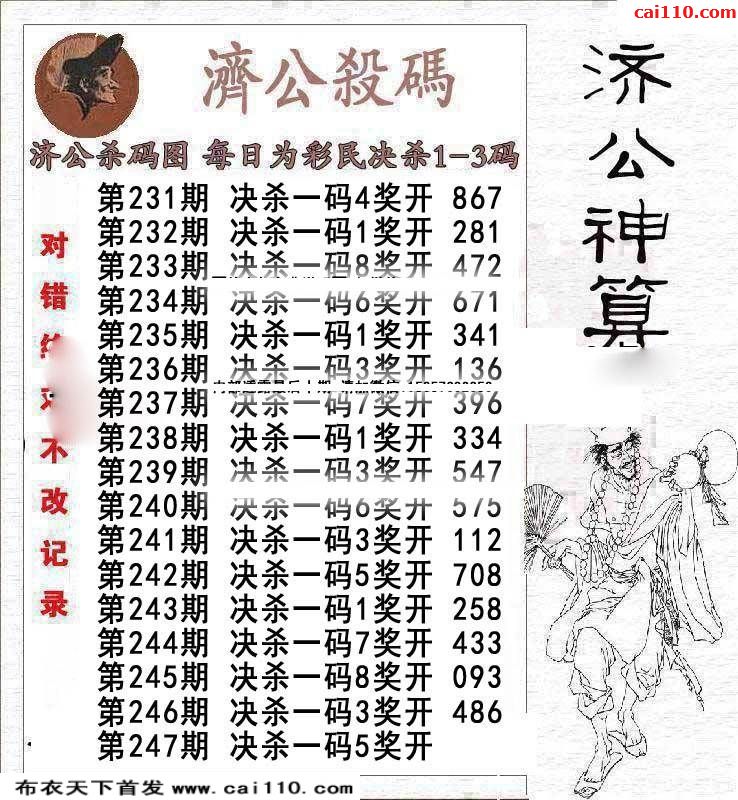 cai110.com
濟公殺碼
济公杀码图 每日为彩民决杀1-3码
第231期 决杀一码4奖开 867
第232期 决杀一码1奖开 281
第233期 决杀一码8奖开 472
第234期 决杀一码6奖开 671
第235期 决杀一码1奖开 341
第236期 决杀一码3奖开 136
第237期 决杀一码7奖开 396
第238期 决杀一码1奖开 334
第239期 决杀一码3奖开 547
第240期 决杀一码6奖开 575
第241期 决杀一码3奖开 112
第242期 决杀一码5奖开 708
第243期 决杀一码1奖开 258
第244期 决杀一码7奖开 433
第245期 决杀一码8奖开 093
第246期 决杀一码3奖开 486
第247期 决杀一码5奖开
对错
不改记录
济公神算
布衣天下首发 www.cai110.com